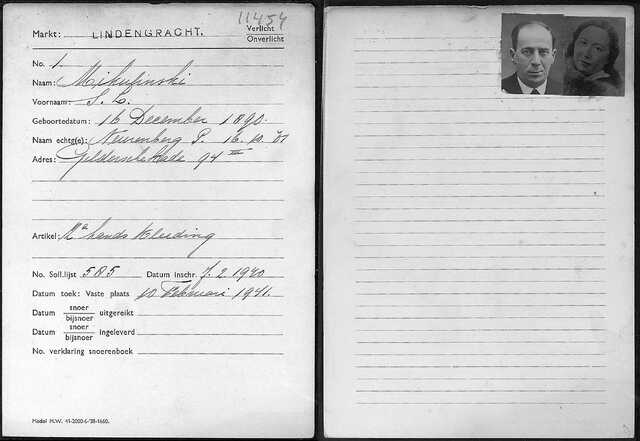 11454
Markt: LINDENGRACHT. Verlicht
Onverlicht
No. 1.
Naam: Mikulinski
Voornaam: S. L.
Geboortedatum: 16 December 1890.
Naam echtg(e): Neurenberg P. 16.10.'01
Adres: Geldersche Kade 94 III
Artikel: 2a hands kleeding
No. Soll.lijst 585 Datum inschr. 7.2.1940
Datum toek: Vaste plaats 10 Februari 1941.
Datum snoer/bijsnoer uitgereikt
Datum snoer/bijsnoer ingeleverd
No. verklaring snoerenboek
Model M.W. 41-2000-6-'39-1660.